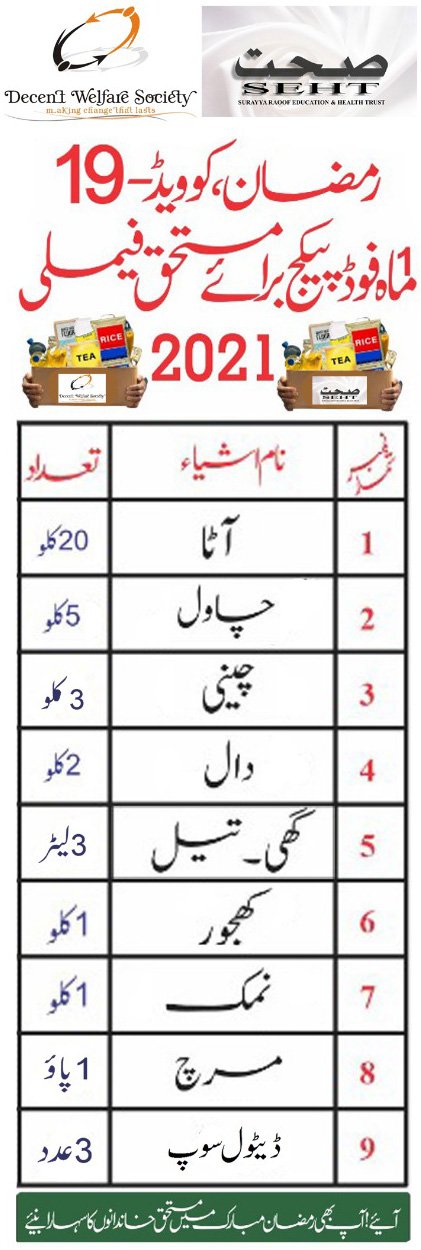 Decent Welfare Society
making change that lasts
صحت
SEHT
SURAYYA RAOOF EDUCATION & HEALTH TRUST
رمضان، کوویڈ-19
1ماہ فوڈ پیکج برائے مستحق فیملی
2021
TEA
RICE
Decent Welfare Society
TEA
RICE
صحت
SEHT
نمبر شمار نام اشیاء تعداد
1 آٹا 20 کلو
2 چاول 5 کلو
3 چینی 3 کلو
4 دال 2 کلو
5 گھی۔ تیل 3 لیٹر
6 کھجور 1 کلو
7 نمک 1 کلو
8 مرچ 1 پاؤ
9 ڈیٹول سوپ 3 عدد
آیئے! آپ بھی رمضان مبارک میں مستحق خاندانوں کا سہارا بنیئے